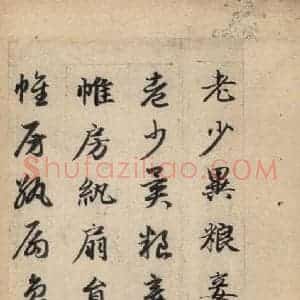 老少異粮妾
老少異粮妾
帷房紈扇貟
帷房紈扇貟
Shufaziliao.COM